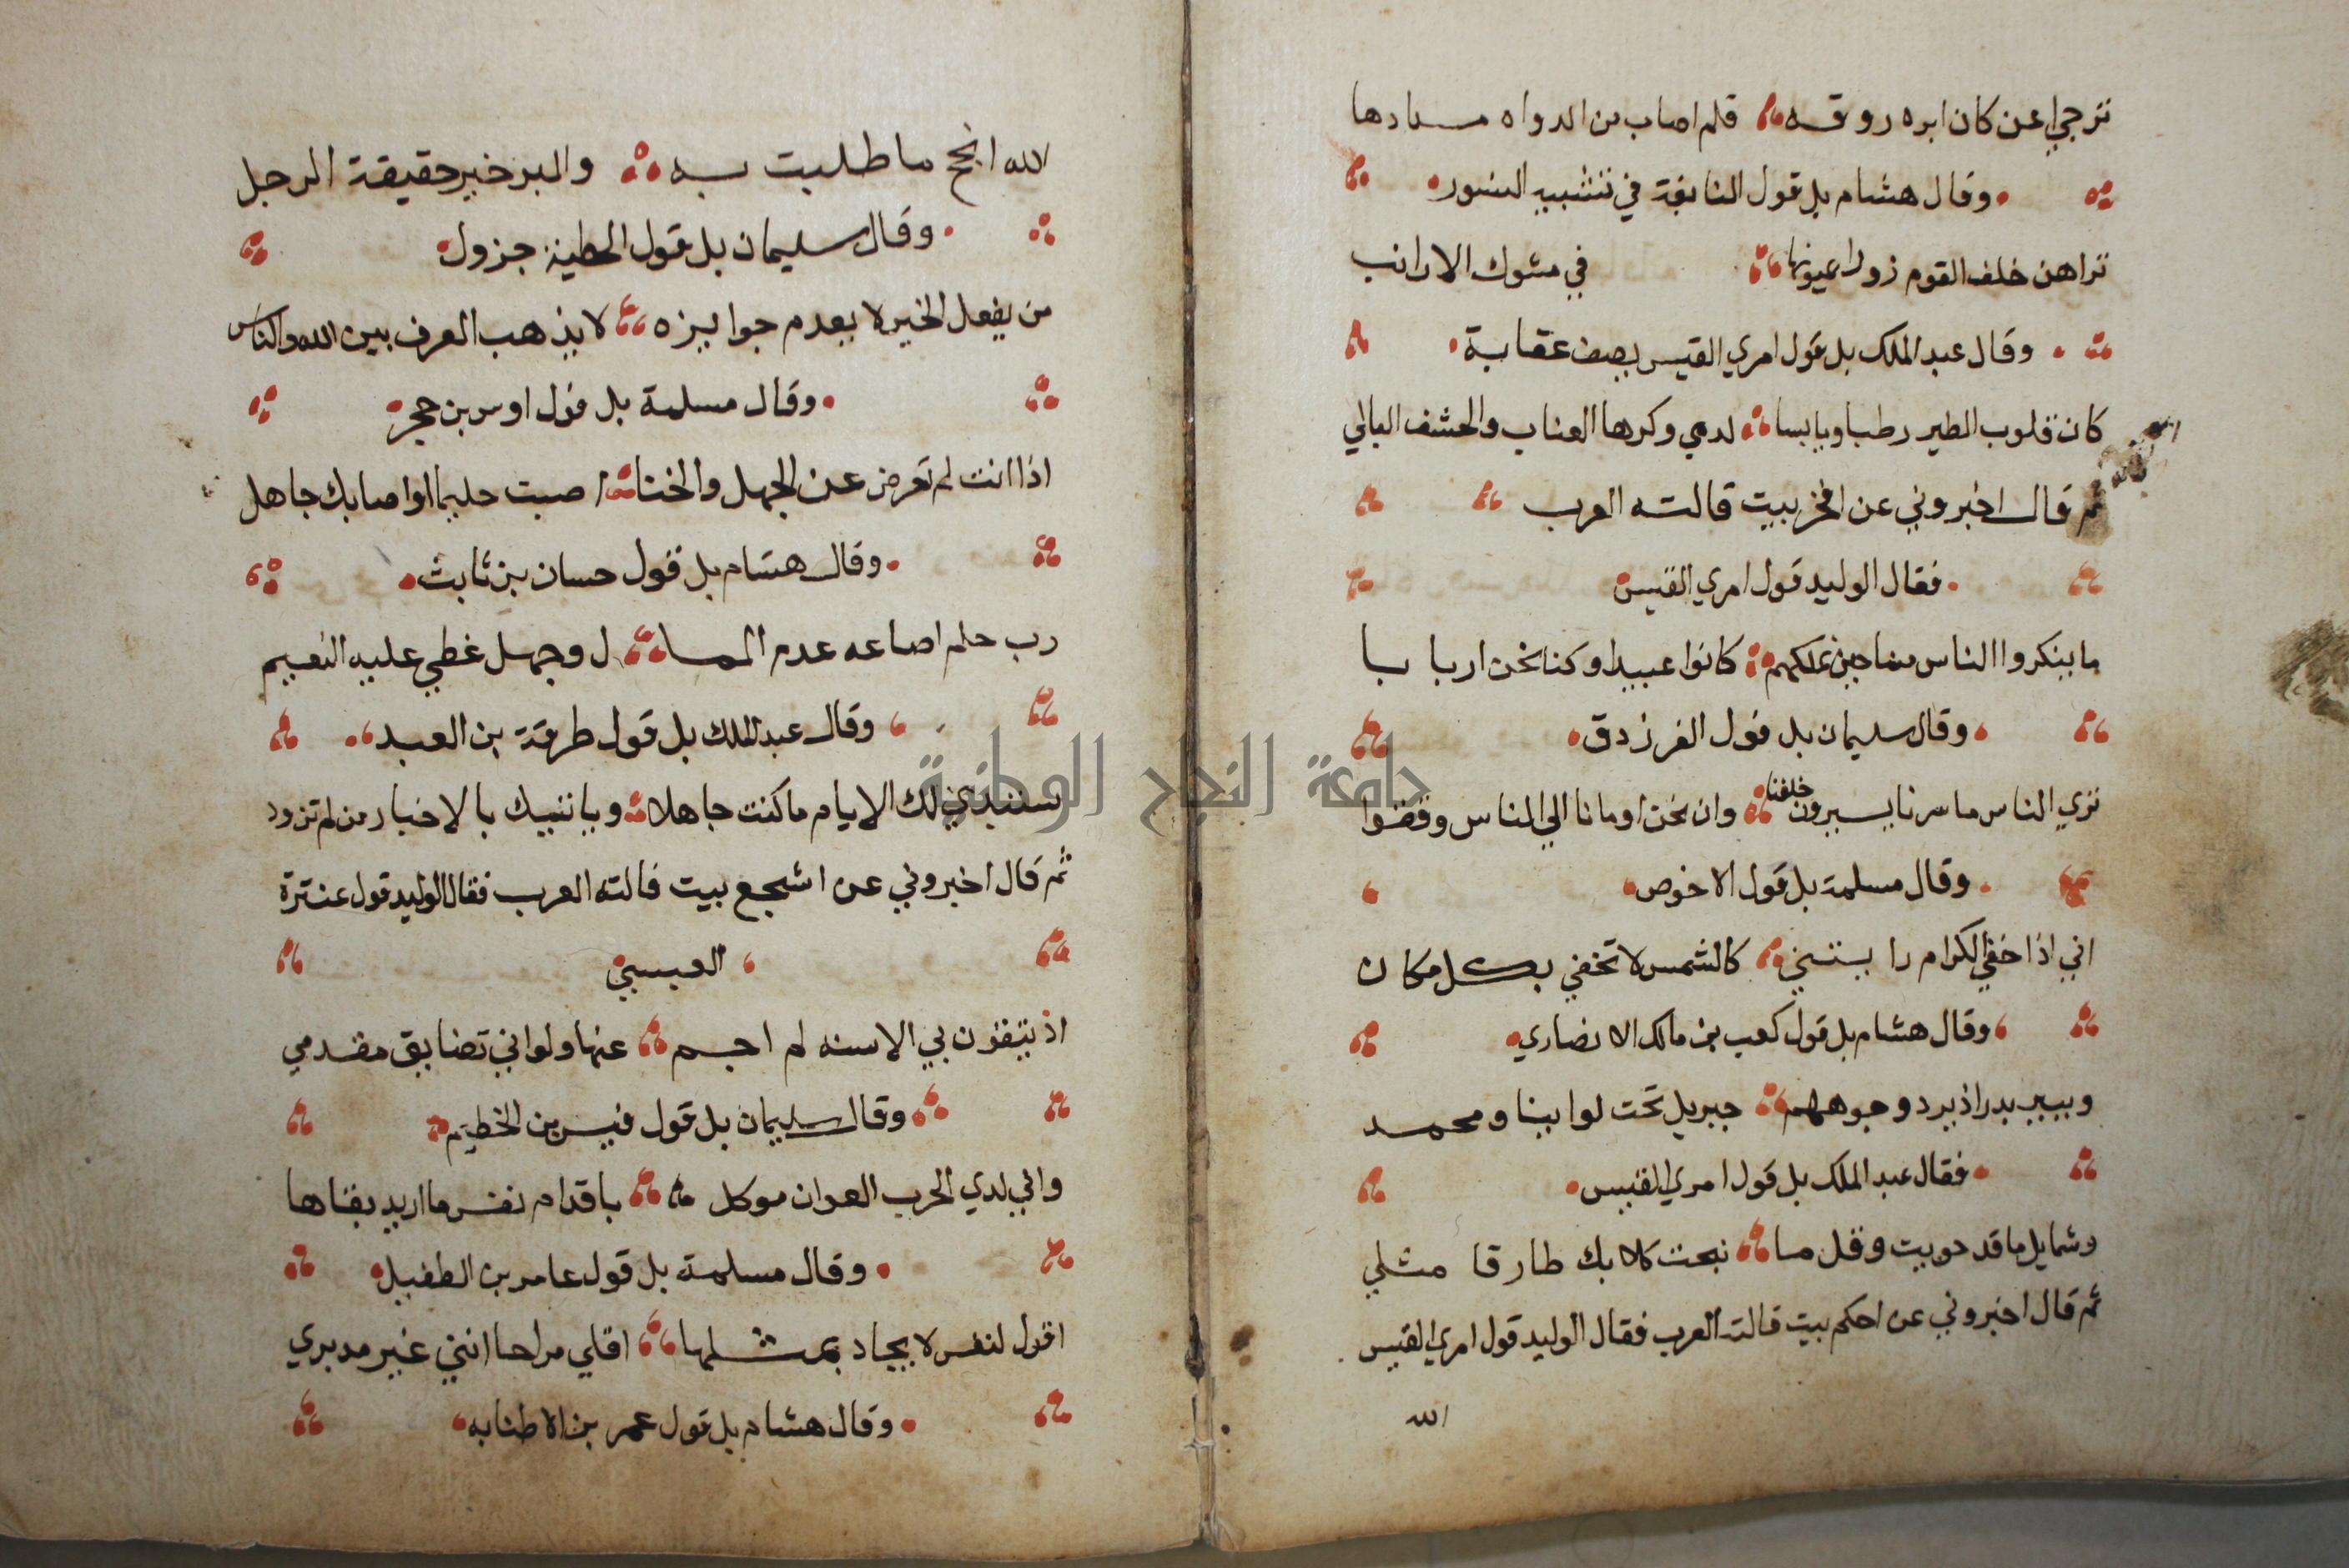 تزجي اعن كان ابره روقه قلم اصاب من الدواه مدادها
وقال هشام بل قول النابغة في تشبيه النسور
تراهن خلف القوم زورا عيونها في مسوك الارانب
وقال عبد الملك بل قول امري القيس يصف عقابة
كان قلوب الطير رطبا ويابسا لدي وكرها العناب والحشف البالي
ثم قال اخبروني عن افخر بيت قالته العرب
فقال الوليد قول امري القيس
ما ينكروا الناس منا حين نملكهم كانوا عبيدا وكنا نحن اربابا
وقال سليمان بل قول الفرزدق
تري الناس ما سرنا يسيرون خلفنا وان نحن اومانا الي الناس وقفوا
وقال مسلمة بل قول الاخوص
اني اذا خفي الكرام رايتني كالشمس لا تخفي بكل مكان
وقال هشام بل قول كعب بن مالك الانصاري
وببير بدر اذ يرد وجوههم جبريل تحت لوايينا ومحمد
فقال عبد الملك بل قول امري القيس
وشمايل ما قد حويت وقل ما نبحت كلابك طارقا مثلي
ثم قال اخبروني عن احكم بيت قالته العرب فقال الوليد قول امري القيس
الله
الله انجح ما طلبت به والبر خير حقيقة الرجل
وقال سليمان بل قول الحطية جزول
من يفعل الخير لا يعدم جوايزه لا يذهب العرف بين الله والناس
وقال مسلمة بل قول اوس بن حجر
اذا انت لم تعرض عن الجهل والخنا اصبت حليما او اصابك جاهل
وقال هشام بل قول حسان بن ثابث
رب حلم اضاعه عدم المال وجهل غطي عليه النعيم
وقال عبد الملك بل قول طرفة بن العبد
ستبدي لك الايام ما كنت جاهلا وياتيك بالاخبار من لم تزود
ثم قال اخبروني عن اشجع بيت قالته العرب فقال الوليد قول عنترة
العبسي
اذ يتقون بي الاسنه لم احم عنها ولو اني تضايق مقدمي
وقال سليمان بل قول قيس بن الخطيم
واني لدي الحرب العوان موكل باقدام نفس ما اريد بقاها
وقال مسلمة بل قول عامر بن الطفيل
اقول لنفس لا يجاد بمثلها اقلي مراحا انني غير مدبري
وقال هشام بل قول عمر بن الاطنابه
جامعة النجاح الوطنية